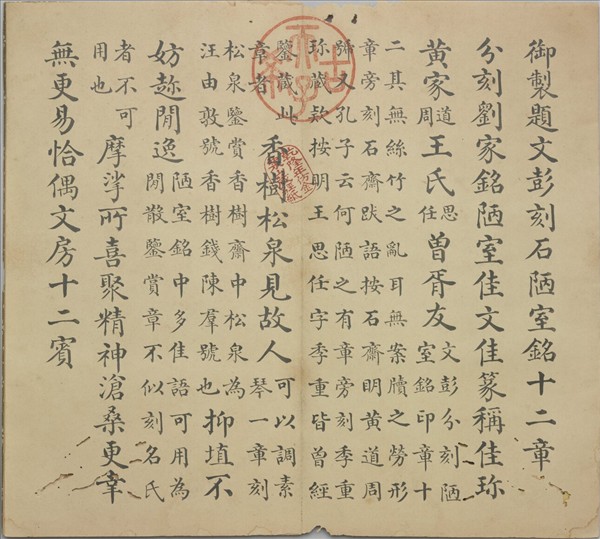 御製題文彭刻石陋室銘十二章
分刻劉家銘陋室佳文佳篆稱佳珎
黄家道周王氏思任曽胥友文彭分刻陋室銘印章十
二其無絲竹之亂耳無案牘之勞形
章旁刻石齋跋語按石齋明黄道周
號又孔子云何陋之有章旁刻季重
珎藏欵按明王思任字季重皆曽經
鑒藏此章者香樹松泉見故人可以調素琴一章刻
松泉鑒賞香樹齋中松泉為汪由敦號香樹錢陳羣號也抑埴不
妨趂閒逸陋室銘中多佳語可用為閒散鑒賞章不似刻名氏
者不可用也摩挲所喜聚精神滄桑更幸
無更易恰偶文房十二賓
古稀天子
乾隆年仿金粟山藏經紙